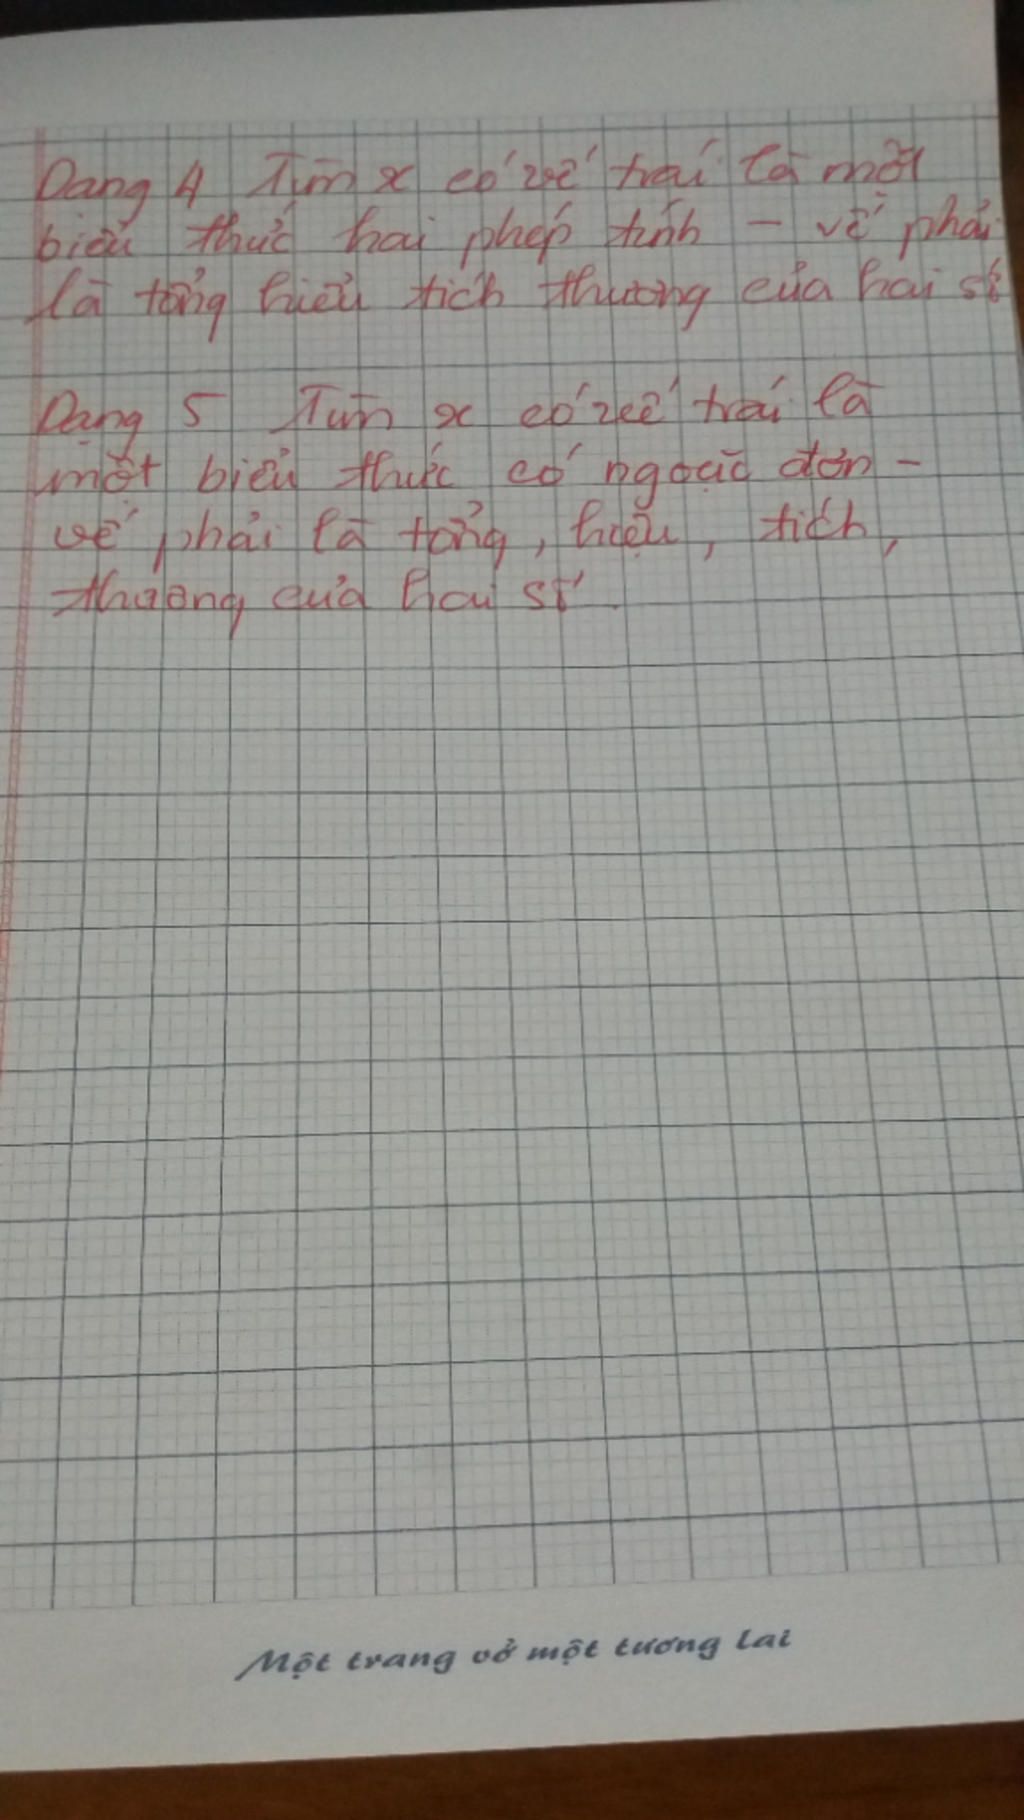 Dạng 4 Tìm x có vế trái là một
biểu thức hai phép tính - vế phải
là tổng hiệu tích thương của hai số
Dạng 5 Tìm x có vế trái là
một biểu thức có ngoặc đơn -
vế phải là tổng, hiệu, tích,
thương của hai số.
Một trang vở một tương lai